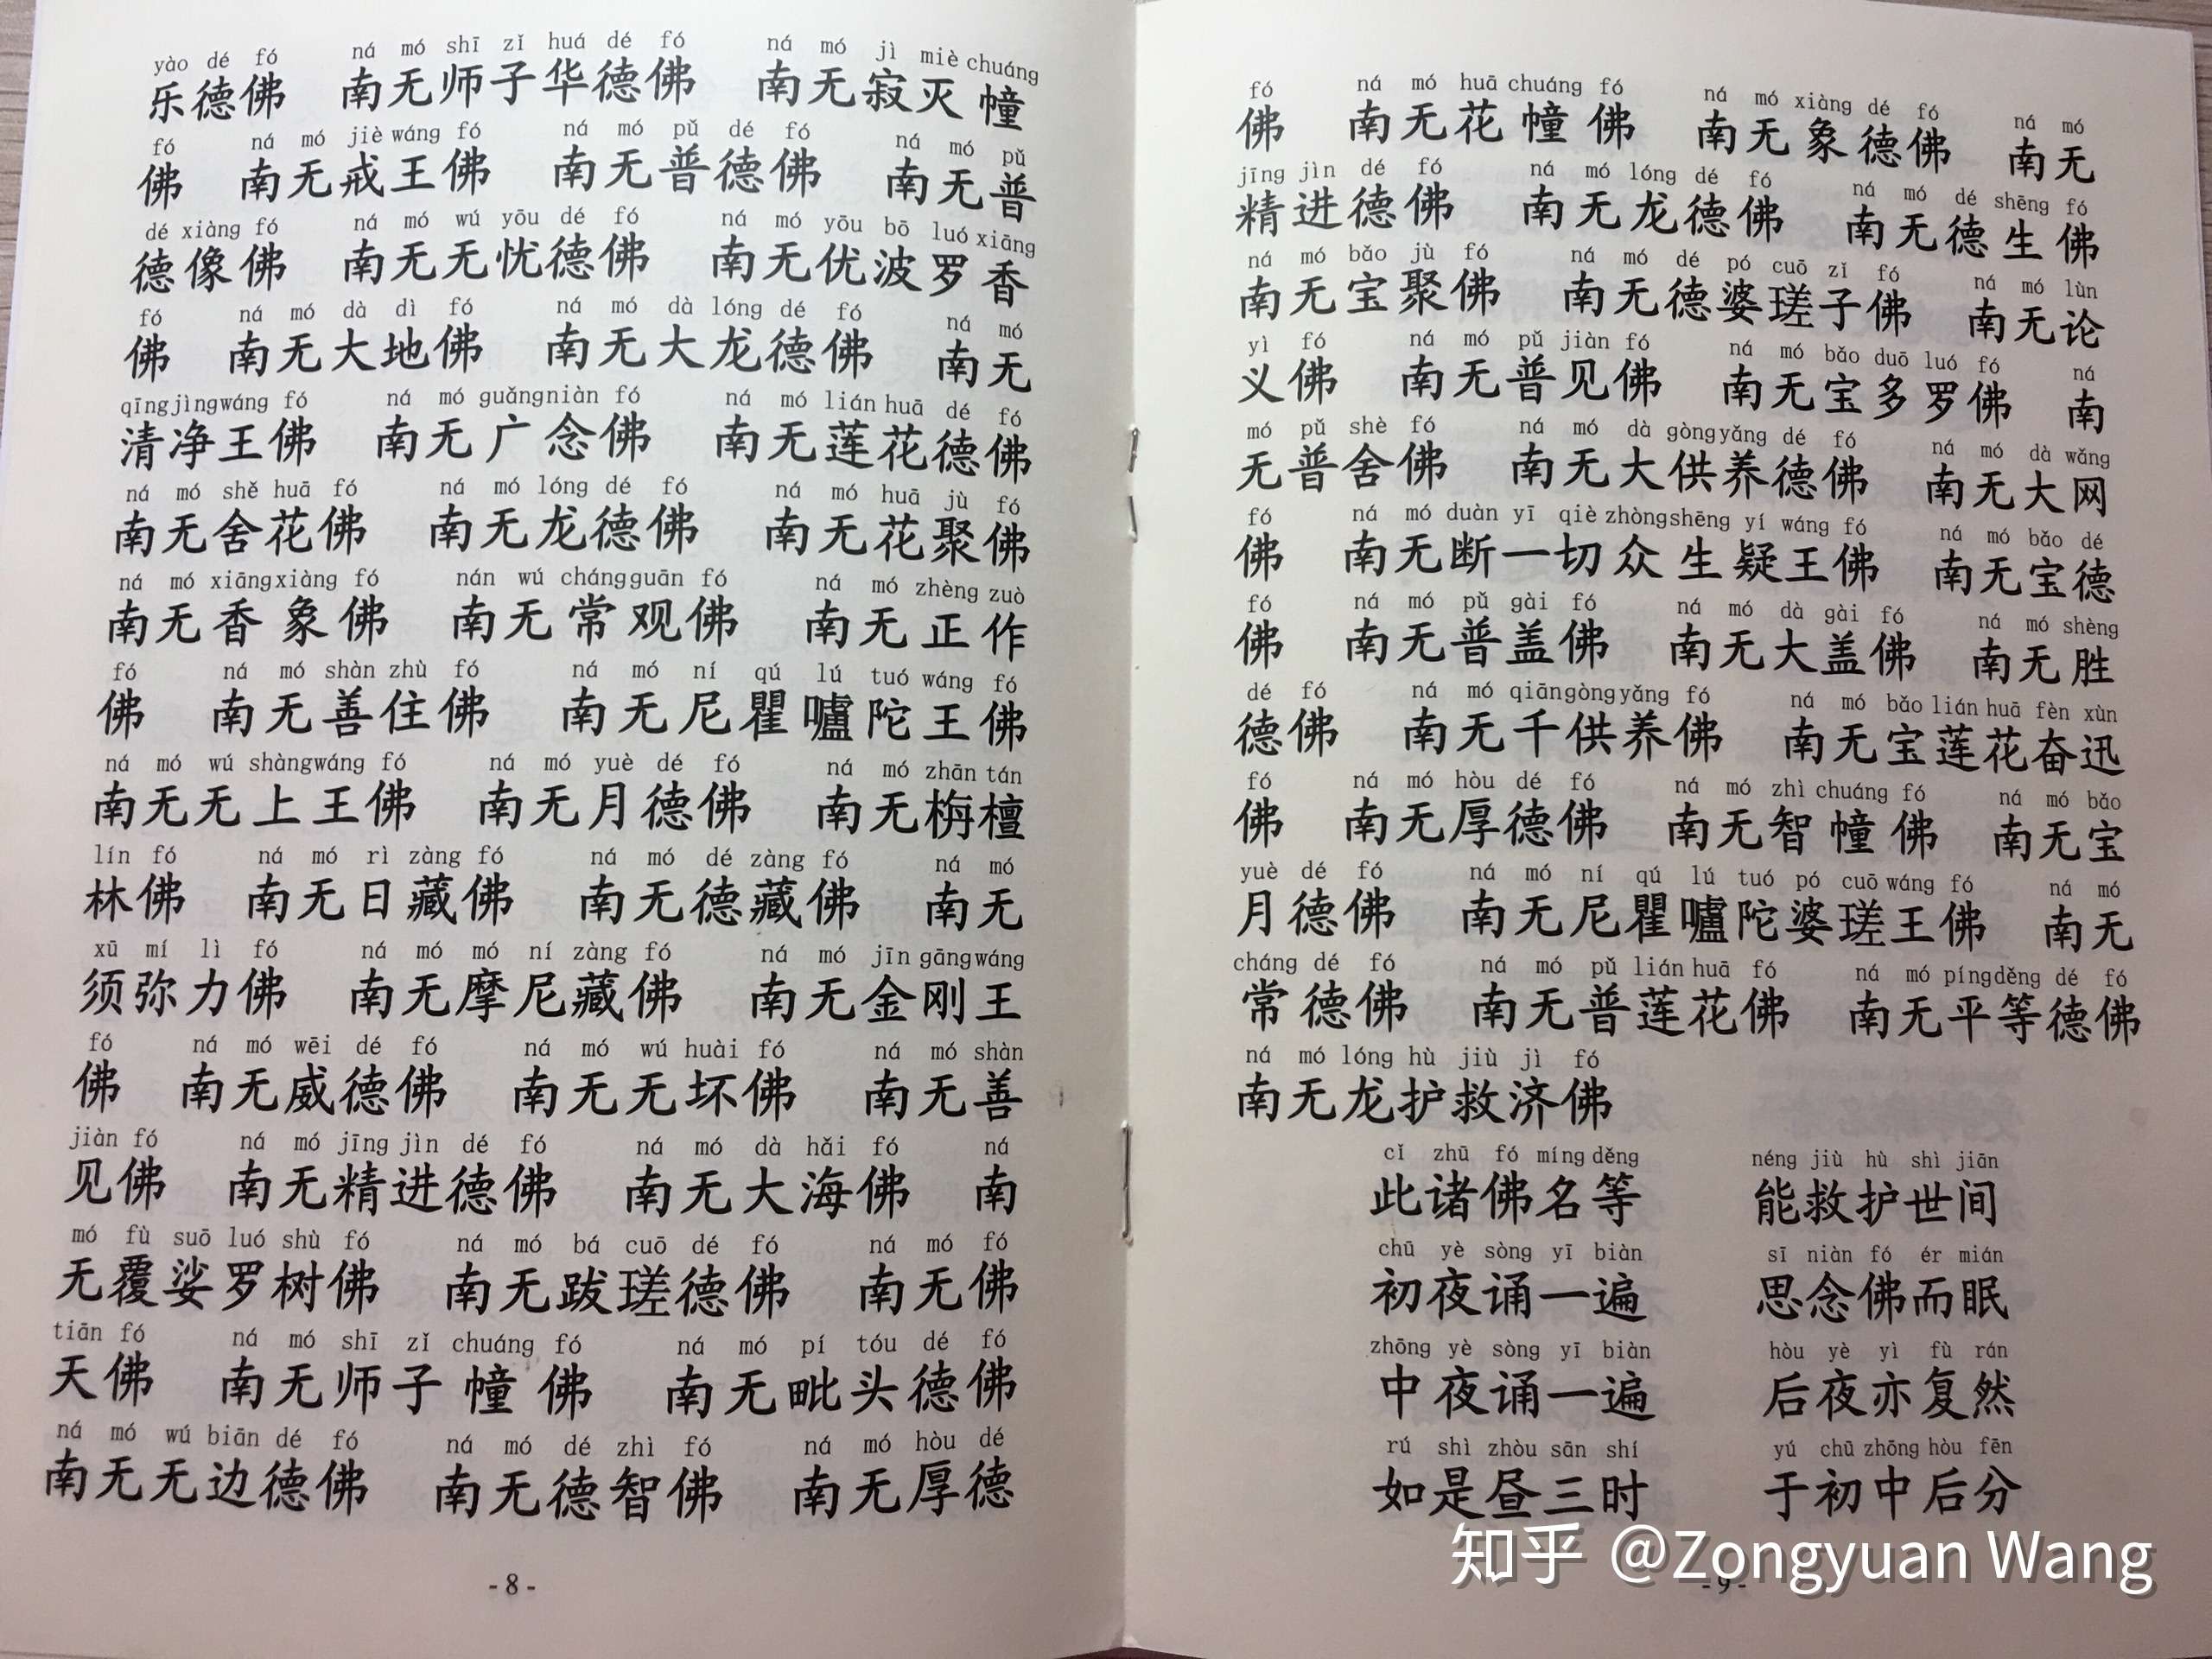 yào dé fó ná mó shī zǐ huá dé fó ná mó jì miè chuáng
乐德佛 南无师子华德佛 南无寂灭幢
fó ná mó jiè wáng fó ná mó pǔ dé fó ná mó pǔ
佛 南无戒王佛 南无普德佛 南无普
dé xiàng fó ná mó wú yōu dé fó ná mó yōu bō luó xiāng
德像佛 南无无忧德佛 南无优波罗香
fó ná mó dà dì fó ná mó dà lóng dé fó ná mó
佛 南无大地佛 南无大龙德佛 南无
qīng jìng wáng fó ná mó guǎng niàn fó ná mó lián huā dé fó
清净王佛 南无广念佛 南无莲花德佛
ná mó shě huā fó ná mó lóng dé fó ná mó huā jù fó
南无舍花佛 南无龙德佛 南无花聚佛
ná mó xiāng xiàng fó nán wú cháng guān fó ná mó zhèng zuò
南无香象佛 南无常观佛 南无正作
fó ná mó shàn zhù fó ná mó ní qú lú tuó wáng fó
佛 南无善住佛 南无尼瞿嚧陀王佛
ná mó wú shàng wáng fó ná mó yuè dé fó ná mó zhān tán
南无无上王佛 南无月德佛 南无栴檀
lín fó ná mó rì zàng fó ná mó dé zàng fó ná mó
林佛 南无日藏佛 南无德藏佛 南无
xū mí lì fó ná mó mó ní zàng fó ná mó jīn gāng wáng
须弥力佛 南无摩尼藏佛 南无金刚王
fó ná mó wēi dé fó ná mó wú huài fó ná mó shàn
佛 南无威德佛 南无无坏佛 南无善
jiàn fó ná mó jīng jìn dé fó ná mó dà hǎi fó ná
见佛 南无精进德佛 南无大海佛 南
mó fù suō luó shù fó ná mó bá cuō dé fó ná mó fó
无覆娑罗树佛 南无跋瑳德佛 南无佛
tiān fó ná mó shī zǐ chuáng fó ná mó pí tóu dé fó
天佛 南无师子幢佛 南无毗头德佛
ná mó wú biān dé fó ná mó dé zhì fó ná mó hòu dé
南无无边德佛 南无德智佛 南无厚德
- 8 -
fó ná mó huā chuáng fó ná mó xiàng dé fó ná mó
佛 南无花幢佛 南无象德佛 南无
jīng jìn dé fó ná mó lóng dé fó ná mó dé shēng fó
精进德佛 南无龙德佛 南无德生佛
ná mó bǎo jù fó ná mó dé pó cuō zǐ fó ná mó lùn
南无宝聚佛 南无德婆瑳子佛 南无论
yì fó ná mó pǔ jiàn fó ná mó bǎo duō luó fó ná
义佛 南无普见佛 南无宝多罗佛 南
mó pǔ shè fó ná mó dà gòng yǎng dé fó ná mó dà wǎng
无普舍佛 南无大供养德佛 南无大网
fó ná mó duàn yī qiè zhòng shēng yí wáng fó ná mó bǎo dé
佛 南无断一切众生疑王佛 南无宝德
fó ná mó pǔ gài fó ná mó dà gài fó ná mó shèng
佛 南无普盖佛 南无大盖佛 南无胜
dé fó ná mó qiān gòng yǎng fó ná mó bǎo lián huā fèn xùn
德佛 南无千供养佛 南无宝莲花奋迅
fó ná mó hòu dé fó ná mó zhì chuáng fó ná mó bǎo
佛 南无厚德佛 南无智幢佛 南无宝
yuè dé fó ná mó ní qú lú tuó pó cuō wáng fó ná mó
月德佛 南无尼瞿嚧陀婆瑳王佛 南无
cháng dé fó ná mó pǔ lián huā fó ná mó píng děng dé fó
常德佛 南无普莲花佛 南无平等德佛
ná mó lóng hù jiù jì fó
南无龙护救济佛
cǐ zhū fó míng děng néng jiù hù shì jiān
此诸佛名等 能救护世间
chū yè sòng yī biàn sī niàn fó ér mián
初夜诵一遍 思念佛而眠
zhōng yè sòng yī biàn hòu yè yì fù rán
中夜诵一遍 后夜亦复然
rú shì zhòu sān shí yú chū zhōng hòu fēn
如是昼三时 于初中后分
- 9 -
知乎 @Zongyuan Wang